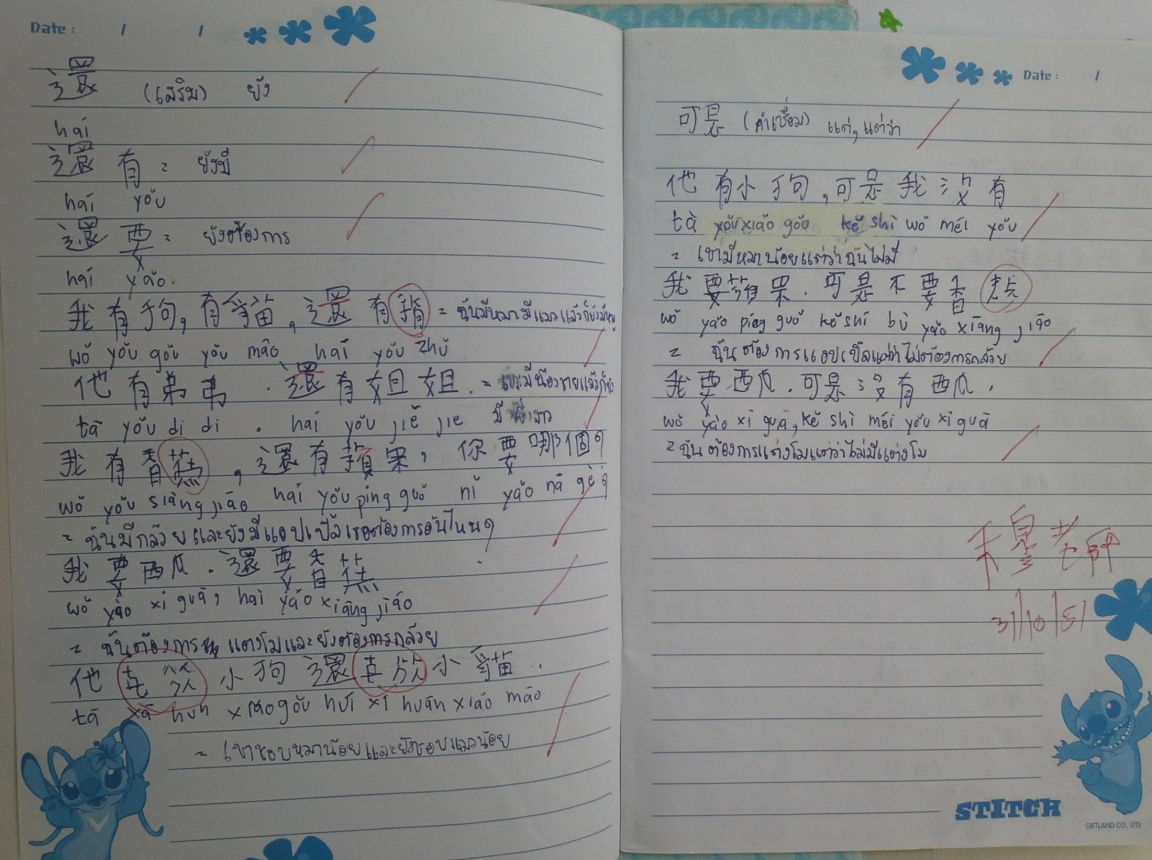 Date : / /
還 (เสริม) ยัง
hái
還 有 = ยังมี
hái yǒu
還 要 = ยังต้องการ
hái yào
我 有 狗, 有 貓, 還 有 豬 = ฉันมีหมามีแมวแล้วก็ยังมีหมู
wǒ yǒu gǒu yǒu māo hái yǒu zhū
他 有 弟 弟 . 還 有 姐 姐 . = เขามีน้องชายแล้วก็ยัง
tā yǒu dì di . hái yǒu jiě jie มีพี่สาว
我 有 香 蕉 , 還 有 蘋 果, 你 要 哪 個 ?
wǒ yǒu siāng jiāo hái yǒu píng guǒ nǐ yào nǎ gè ?
= ฉันมีกล้วยและยังมีแอปเปิ้ลเธอต้องการอันไหน ?
我 要 西 瓜 . 還 要 香 蕉
wǒ yào xī guā, hái yào xiāng jiāo
= ฉันต้องการ แตงโมและยังต้องการกล้วย
他 小 狗 還 小 貓 .
tā xǐ huān xiǎo gǒu hái xǐ huān xiǎo māo
= เขาชอบหมาน้อยและยังชอบแมวน้อย
Date : /
可 是 (คำเชื่อม) แต่, แต่ว่า
他 有 小 狗 , 可 是 我 沒 有
tā yǒu xiǎo gǒu kě shì wǒ méi yǒu
= เขามีหมาน้อยแต่ว่าฉันไม่มี
我 要 蘋 果 . 可 是 不 要 香 蕉
wǒ yào píng guǒ kě shì bù yào xiāng jiāo
= ฉันต้องการแอปเปิ้ลแต่ว่าไม่ต้องการกล้วย
我 要 西 瓜 . 可 是 沒 有 西 瓜 .
wǒ yào xī guā, kě shì méi yǒu xī guā
= ฉันต้องการแตงโมแต่ว่าไม่มีแตงโม
老師
31/10/51
STITCH
GIFTLAND CO., LTD.